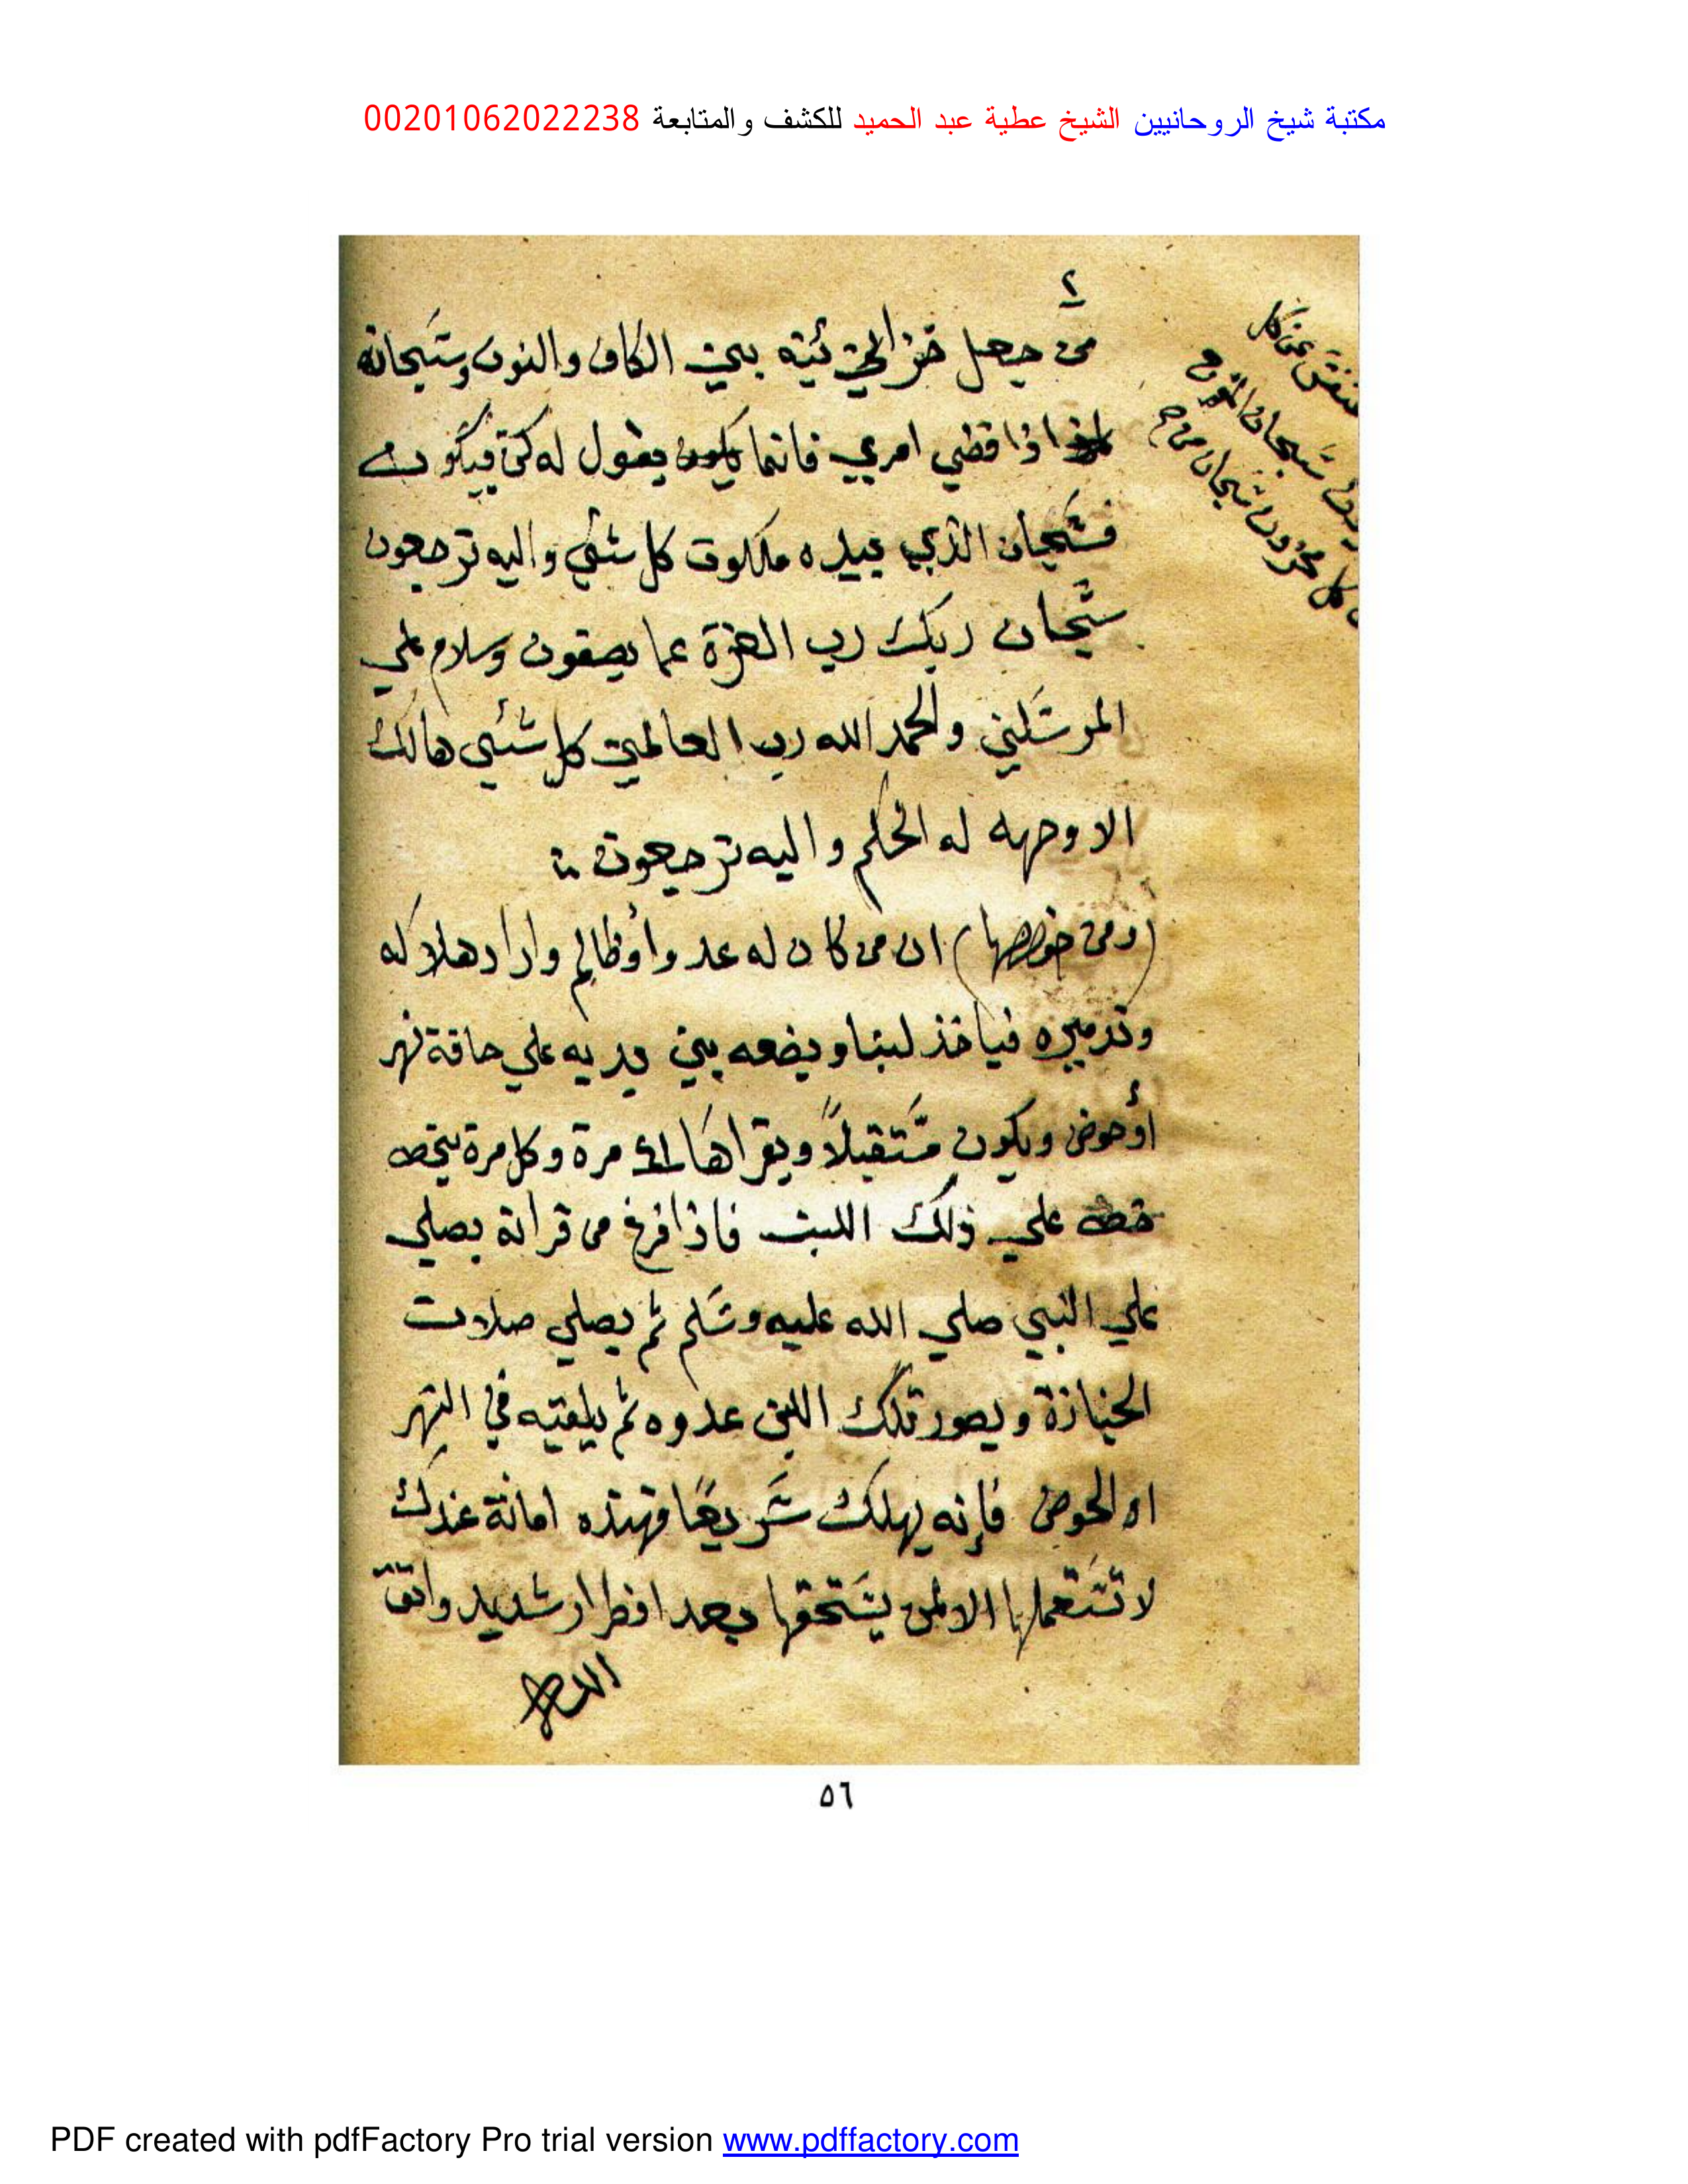 مكتبة شيخ الروحانيين الشيخ عطية عبد الحميد للكشف والمتابعة 00201062022238
٢
من جعل خزائنه بين الكاف والنون وسبحانه
اذا قضي امري فانما يقول له كن فيكون
فسبحان الذي بيده ملكوت كل شئي واليه ترجعون
سبحان ربك رب العزة عما يصفون وسلام علي
المرسلين والحمد الله رب العالمين كل شئي هالك
الا وجهه له الحكم واليه ترجعون
(ومن خواصها) ان من كان له عدوا أوظالم واراد هلاكه
وتدميره فياخذ لبنا ويضعه بين يديه علي حافة نهر
أوحوض ويكون مستقبلاً ويقراها مرة وكل مرة
علي ذلك اللبن فاذا فرغ من قراته يصلي
علي النبي صلي الله عليه وسلم ثم يصلي صلات
الجنازة ويصور تلك اللبن عدوه ثم يلقيه في النهر
او الحوض فإنه يهلك سريعًا فهذه امانة عندك
لا تستعملها الا لمن يستحقها بعد اضطرار شديد واتق
الله
عن كل
سبحان
كل محزون سبحان من
٥٦
PDF created with pdfFactory Pro trial version www.pdffactory.com